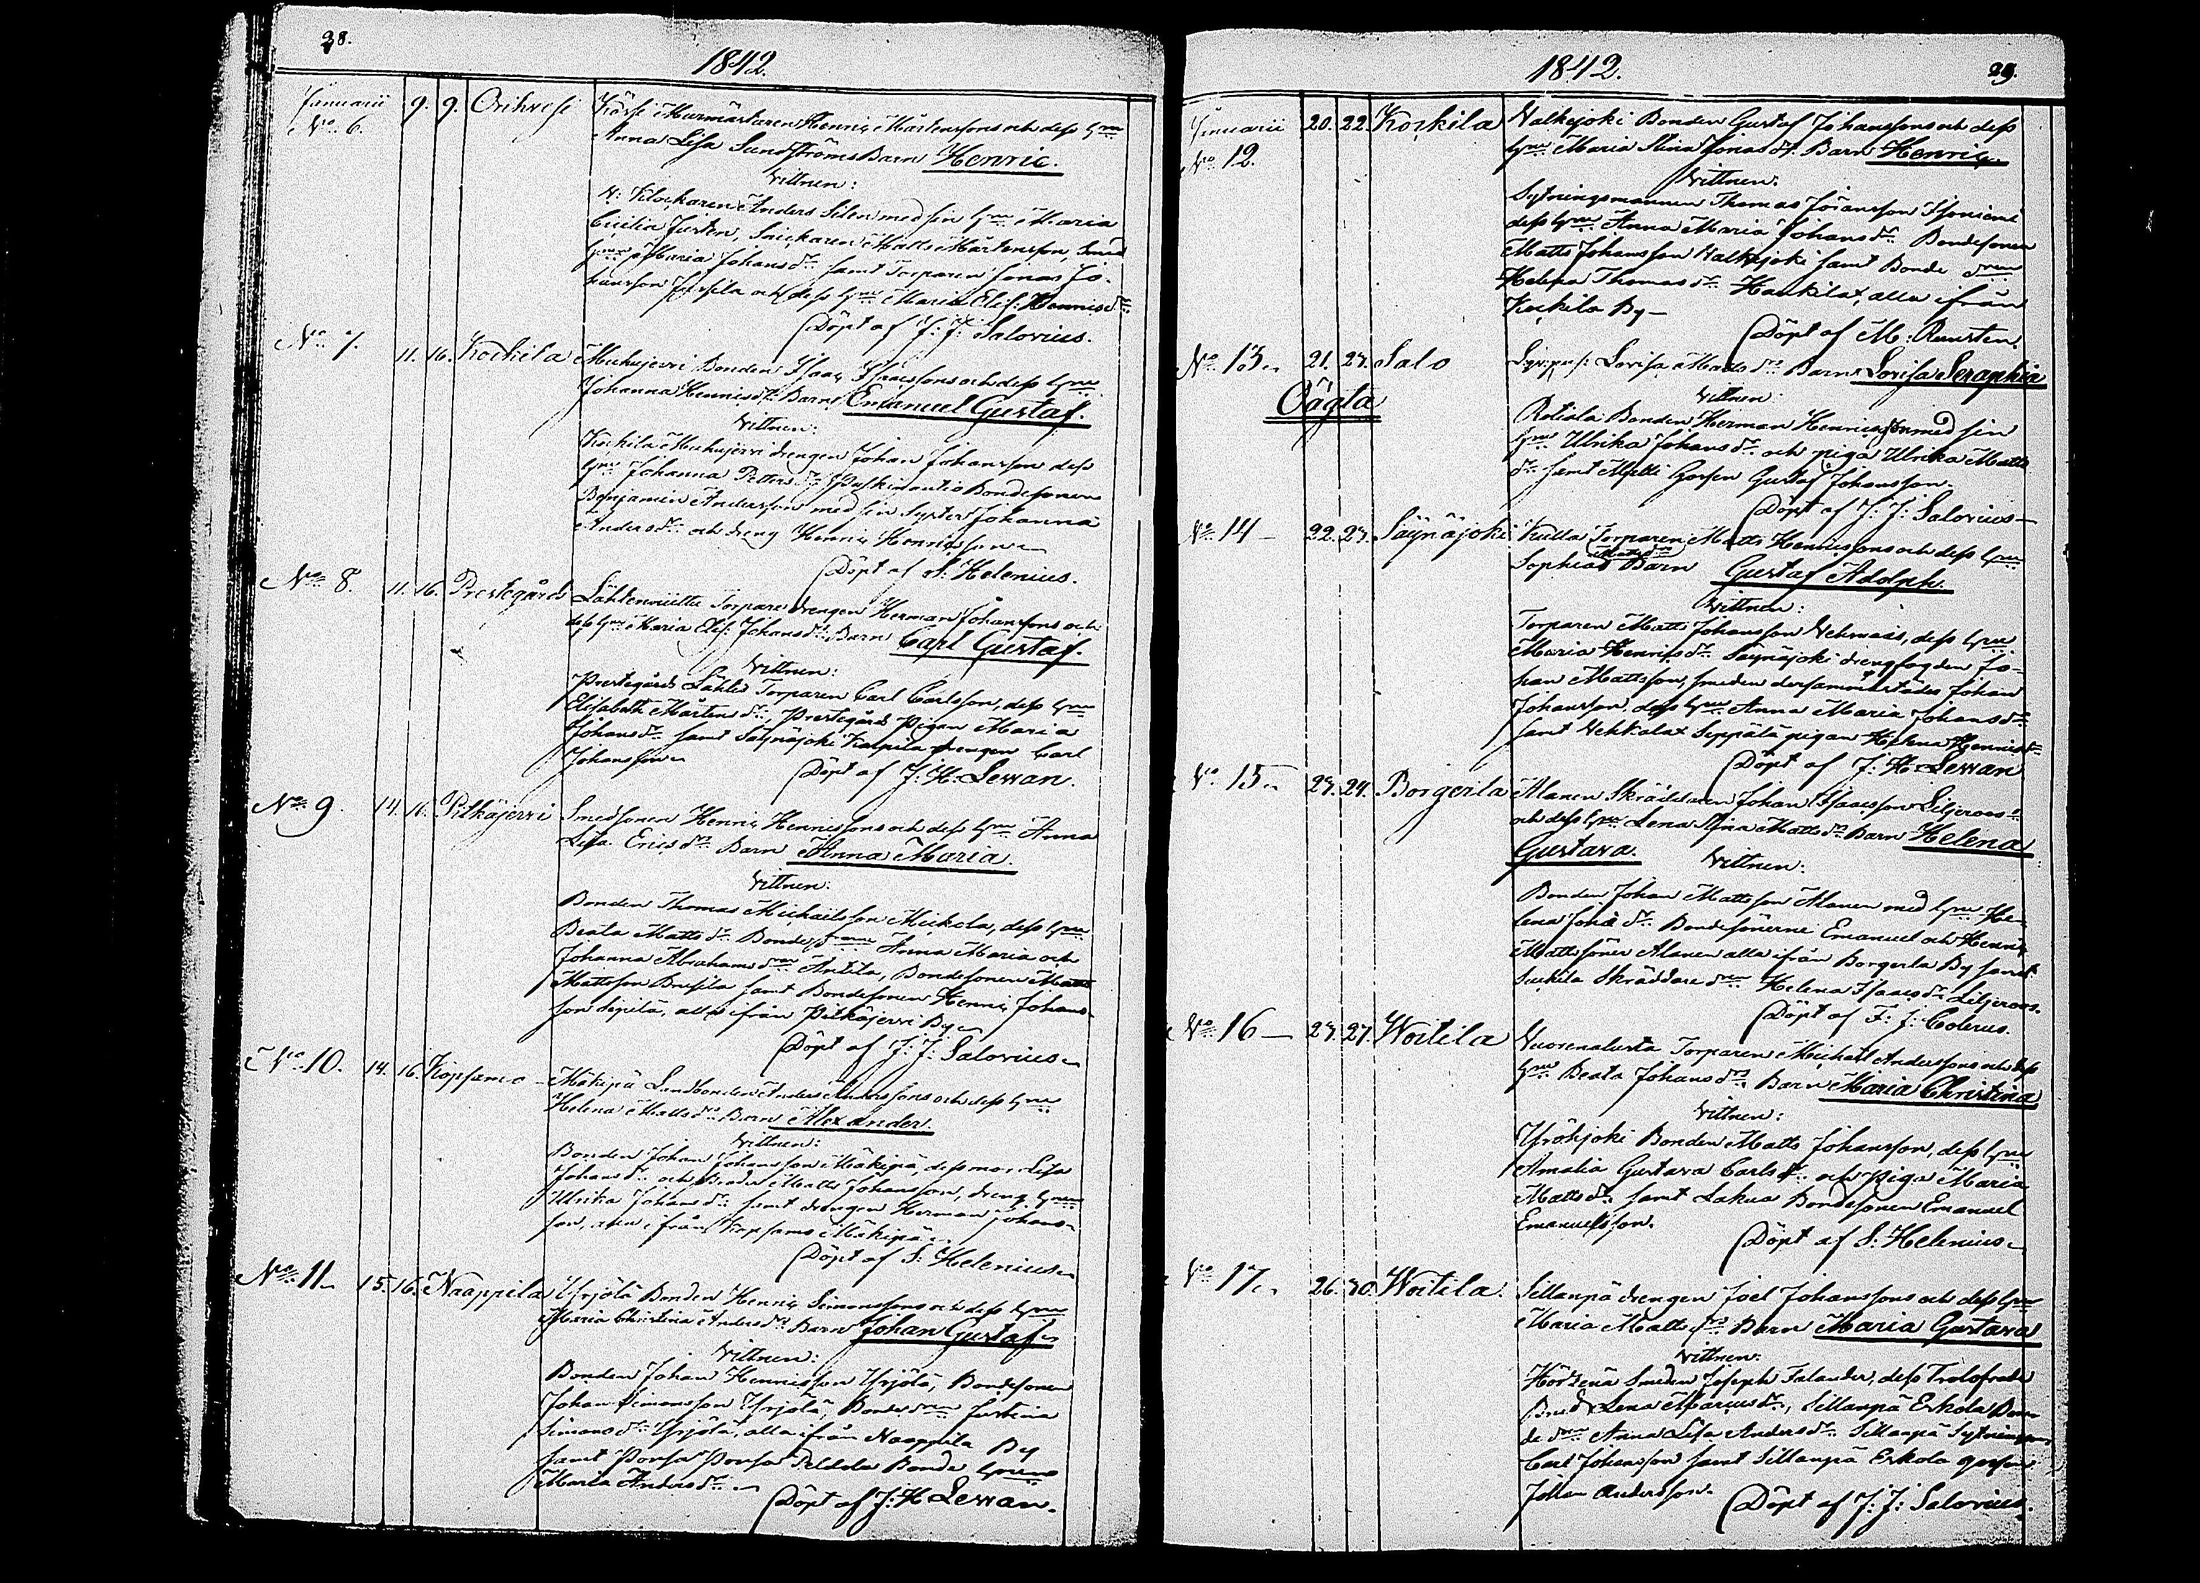 28.
1842.
Januarii 9. 9. Orihvesi
No 6.
Murmästaren Henric Mårtenssons och dess hru
Anna Lisa Sundströms Barn Henric.
Vittnen:
Klockaren Anders Silen med sin hru Maria
Cecilia Justen, Snickaren Matts Mårtensson,
hru Maria Johansdr samt Torparen Jonas Jo-
hansson och dess hru Maria Elis: Henricsdr
Döpt af J: J: Salovius.
No 7. 11. 16. Kockila
Bonden Isaac Isacssons och dess hru
Johanna Henricsdrs Barn Emanuel Gustaf.
Vittnen:
Kockila drengen Johan Johansson dess
hru Johanna Pettersdr Bondesonen
Benjamin Andersson med sin Syster Johanna
Andersdr och dreng Henric Henricsson
Döpt af S. Helenius.
No 8. 11. 16. Prestegård
Torpare drengen Herman Johanssons och
dess hru Maria Elis: Johansdrs Barn Carl Gustaf.
Vittnen:
Prestegårds Torparen Carl Carlsson, dess hru
Elisabeth Mårtensdr, Prestegårds Pigan Maria
Johansdr samt Säynäjoki drengen Carl
Johansson
Döpt af J: H. Levvan.
No 9. 14. 16. Pitkäjervi
Smedsonen Henric Henricssons och dess hru Anna
Lisa Ericsdrs Barn Anna Maria.
Vittnen:
Bonden Thomas Michaelsson Mickola, dess hru
Beata Mattsdr Bondedrarne Anna Maria och
Johanna Abrahamsdrar Antila, Bondesonen Matts
Mattsson samt Bondesonen Henric Johans-
son alla ifrån Pitkäjervi By
Döpt af J: J: Salovius
No 10. 14. 16. Kopsamo
Mäkipä Landbonden Anders Anderssons och dess hru
Helena Mattsdrs Barn Alexander.
Vittnen:
Bonden Johan Johansson Mäkipä, dess mor Lisa
Johansdr och Matts Johansson, dreng hru
Ulrika Johansdr samt drengen Herman Johans-
son, alla ifrån Kopsamo Mäkipä
Döpt af S: Helenius
No 11. 15. 16. Naappila
Yrjölä Bonden Henric Simonssons och dess hru
Maria Christina Andersdrs Barn Johan Gustaf
Vittnen:
Bonden Johan Henricsson Yrjölä, Bondesonen
Johan Simonsson Yrjölä, Bondedren Justina
Simonsdr Yrjölä, alla ifrån Naappila By
samt Bonde hrun
Maria Andersdr
Döpt af J: H Levvan.
1842.
29.
Januarii 20. 22. Kockila
No 12.
Valkejoki Bonden Gustaf Johanssons och dess
hru Maria Stina Jonasdrs Barn Henric
Vittnen.
Sytningsmannen Thomas Johansson
dess hru Anna Maria Johansdr Bondesonen
Matts Johansson Valkejoki samt Bonde dren
Helena Thomasdr alla ifrån
Kockila By
Döpt af M:
No 13. 21. 23. Salo
Oägta
Lovisa Mattsdrs Barn Lovisa Seraphia
Vittnen:
Rotiala Bonden Herman Henricsson med sin
hru Ulrika Johansdr och piga Ulrika Matts
dr samt Gossen Gustaf Johansson.
Döpt af J: J: Salovius
No 14 22. 23. Säynäjoki
Kulla Torparen Matts Henricssons och dess hru
Mattsdrs
Sophias Barn Gustaf Adolph.
Vittnen:
Torparen Matts Johansson Vehmais, dess hru
Maria Henricsdr Säynäjoki drengfogden Jo-
han Mattsson, smeden dersammastädes Johan
Johansson, dess hru Anna Maria Johansdr
samt Seppälä pigan Helena Henricsdr
Döpt af J: H. Levvan
No 15. 23. 24. Borgerila
Alanen Skräddaren Johan Isaacsson Liljeroos
och dess hru Lena Stina Mattsdrs Barn Helena
Gustava. Vittnen:
Bonden Johan Mattsson Alanen med hru He-
lena Bondesönerne Emanuel och Henric
Mattssöner Alanen alla ifrån Borgerla By samt
Skräddare dren Helena Isaacsdr Liljeroos.
Döpt af F: J: Colerus.
No 16 23. 27. Woitila
Torparen Michael Anderssons och dess
hru Beata Johansdrs Barn Maria Christina
Vittnen:
Bonden Matts Johansson, dess hru
Amalia Gustava Carlsdr och piga Maria
Mattsdr samt Lakua Bondesonen Emanuel
Emanuelsson.
Döpt af S: Helenius
No 17. 26. 30. Woitila.
Sillanpä drengen Joel Johanssons och dess hru
Maria Mattsdrs Barn Maria Gustava
Vittnen:
Smeden Joseph Falander, dess Trolofvade
Brud Lena Sillanpä Erkola Bon-
de dren Anna Lisa Andersdr Sillanpä
Carl Johansson samt Sillanpä Erkola gossen
Johan Andersson. Döpt af J: J: Salovius.